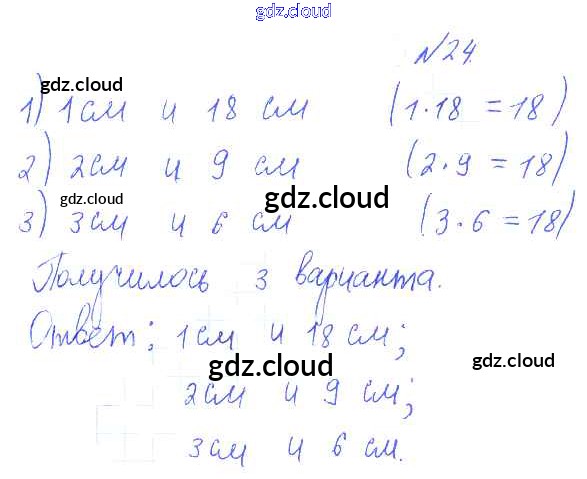 gdz.cloud
№24.
gdz.cloud
1) 1см и 18 см (1·18 = 18)
2) 2см и 9 см (2·9 = 18)
gdz.cloud gdz.cloud
3) 3см и 6 см (3·6 = 18)
Получилось 3 варианта.
Ответ: 1см и 18 см;
gdz.cloud gdz.cloud
2см и 9 см;
gdz.cloud
3см и 6 см.